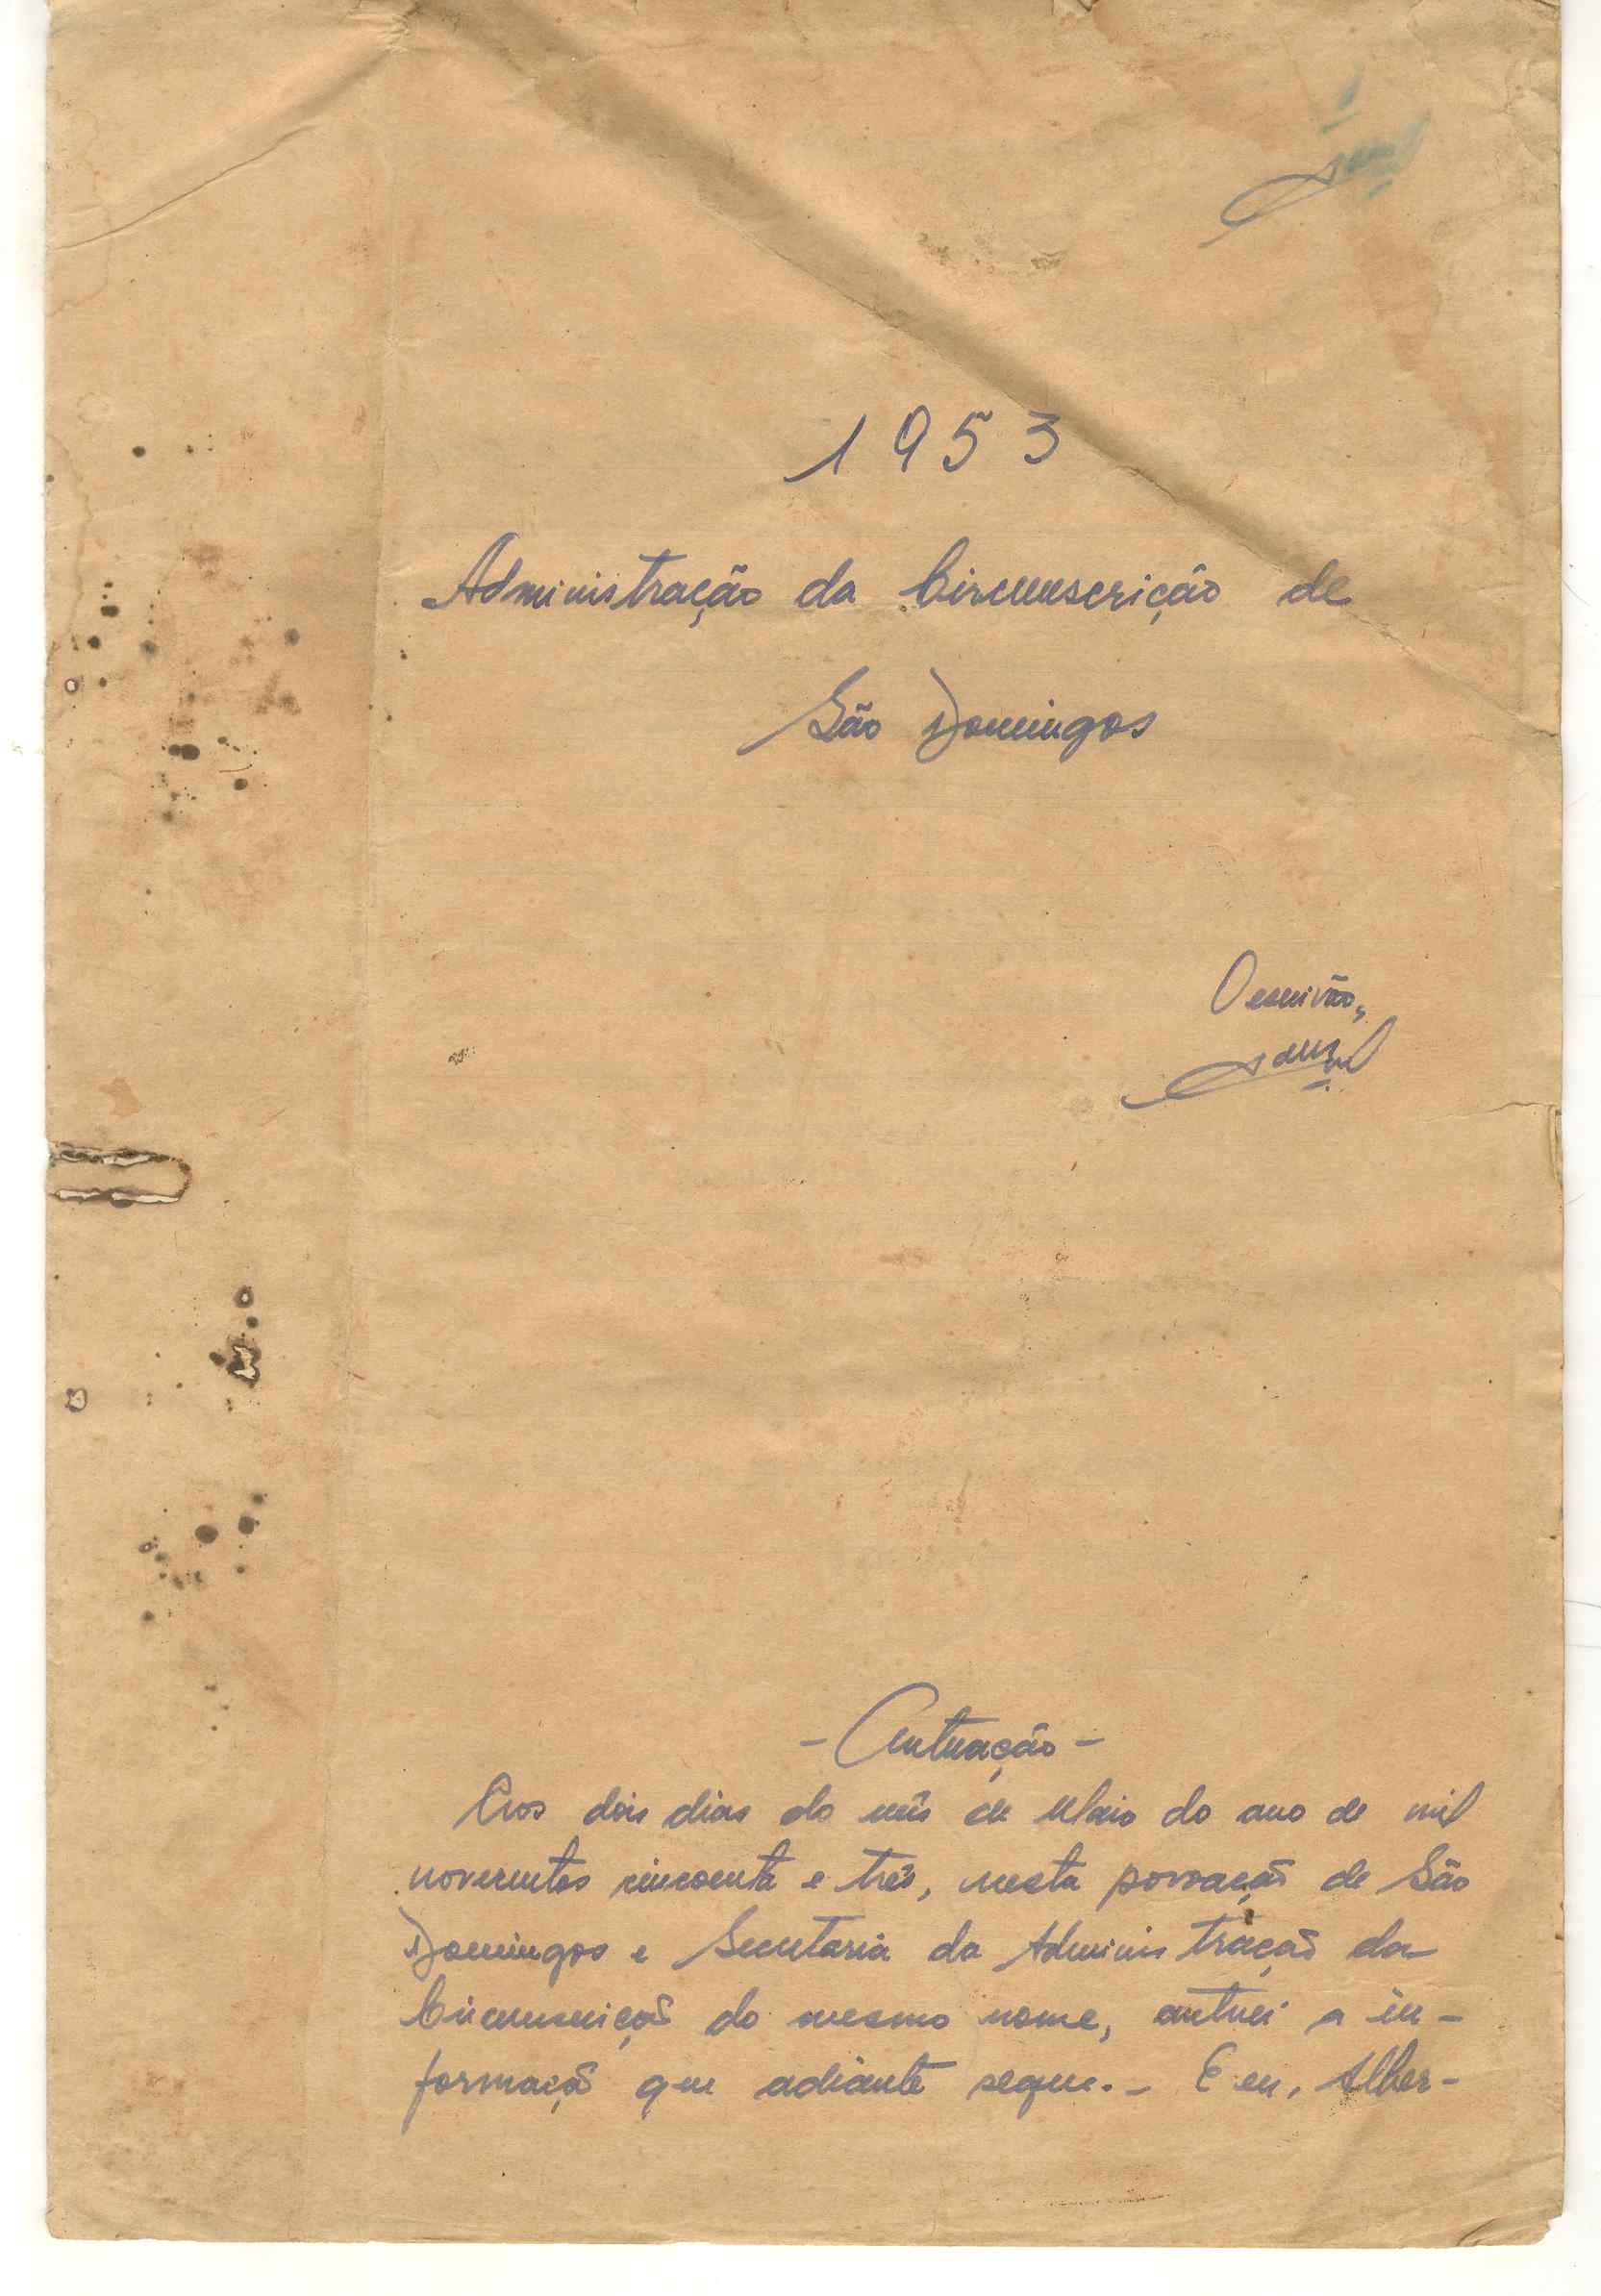 1953
Administração da Circunscrição de
São Domingos
O escrivão,
- Autuação -
Aos dois dias do mês de Maio do ano de mil
novecentos cincoenta e três, nesta povoação de São
Domingos e Secretaria da Administração da
Circunscrição do mesmo nome, autuei a in-
formação que adiante segue. - E eu, Alber-